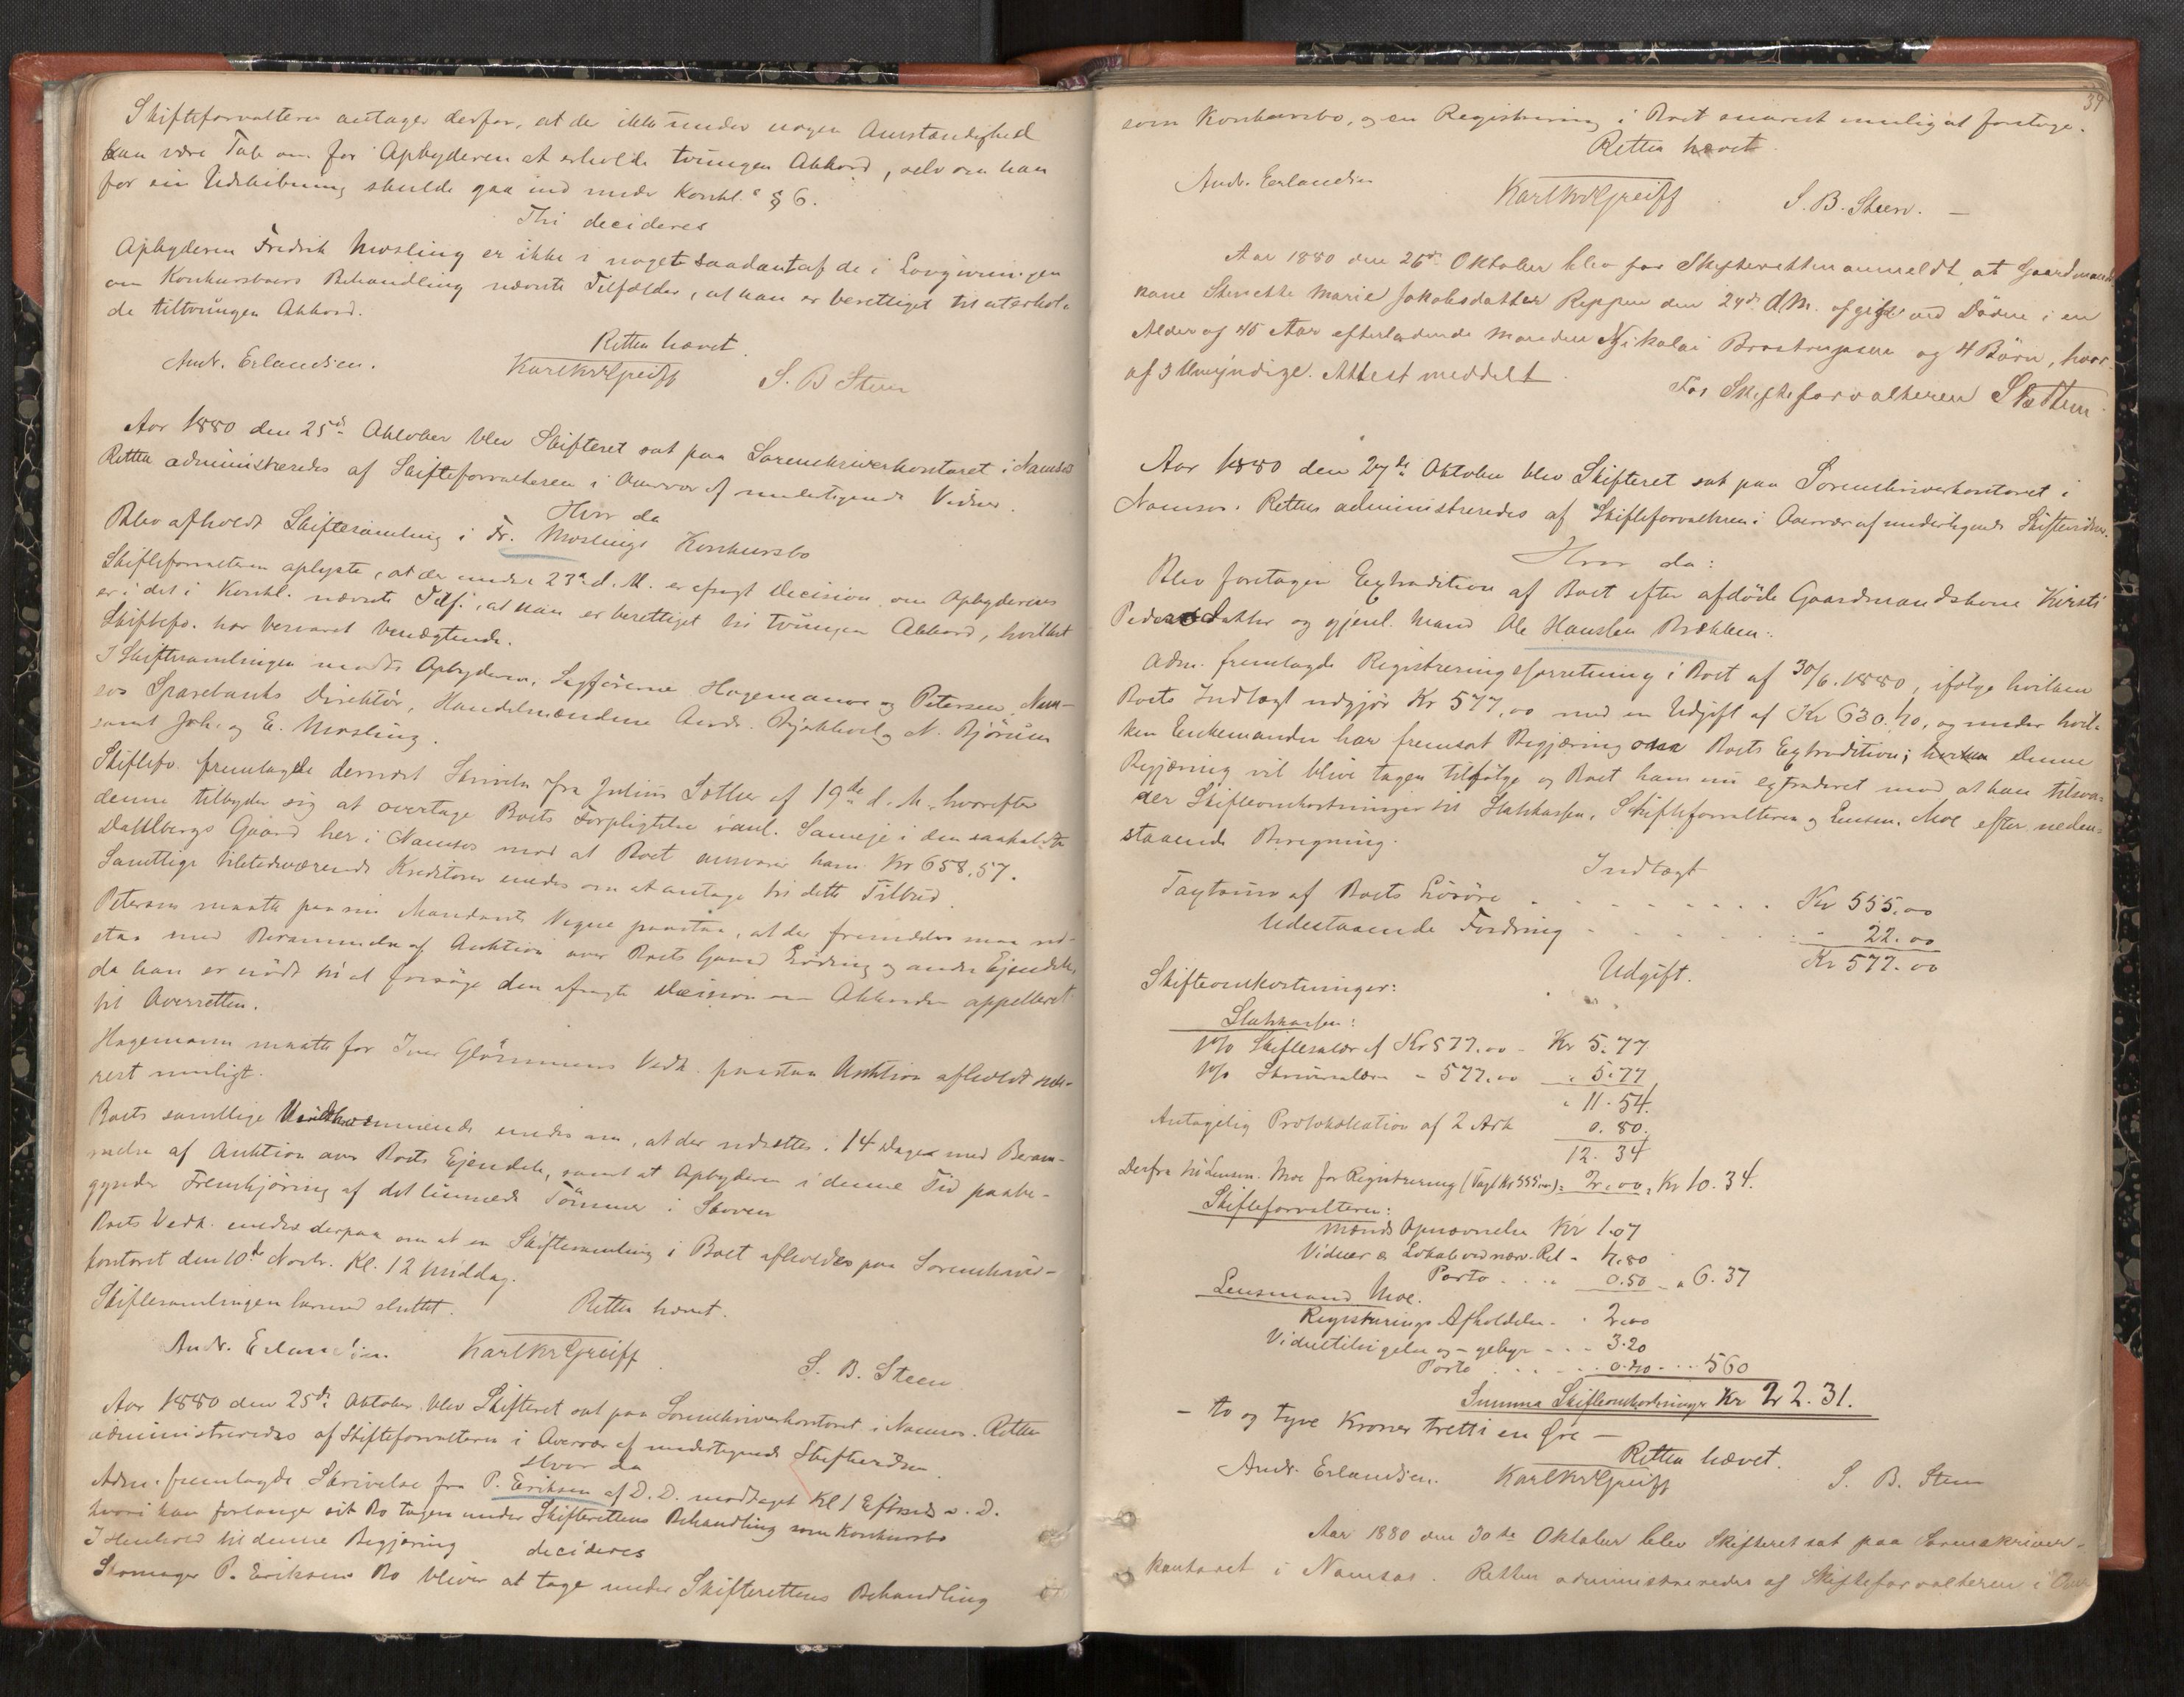 Skifteforvalteren antager derfor, at der ikke under nogen Omstændighed
kan være Tale om for Opbyderen at erholde tvungen Akkord, selv om han
for sin Udskibning skulde gaa ind under Konkl.s § 6.
Thi decideres
Opbyderen Fredrik Møsling er ikke i noget saadant af de i Lovgivningen
om Konkursboers Behandling nævnte Tilfælder, at han er berettiget til at erhol-
de tiltvungen Akkord.
Retten hævet.
Andr. Erlandsen. Karl Kr Greiff S. B Steen
Aar 1880 den 25de Oktober blev Skifteret sat paa Sorenskriverkontoret i Namsos
Retten administreredes af Skifteforvalteren i Overvær af undertegnede Vidner.
Hvor da
Blev afholdt Skiftesamling i Fr. Møslings Konkursbo
Skifteforvalteren oplyste, at der under 23de d. M. er afsagt Decision, om Opbyderens
er i det i Konkl. nævnte Tilf., at han er berettiget til tvungen Akkord, hvilket
Skiftefo. har besvaret benægtende.
I Skiftesamlingen mødte Opbyderen, Sagførerne Hagemann og Petersen, Nam-
sos Sparebanks Direktør, Handelsmændene Andr. og N. Bjørum
samt Joh. og E. Møsling.
Skiftefo. fremlagde dernæst Skrivelse fra Julius Sother af 19de d. M., hvorefter
denne tilbyder sig at overtage Boets Forpligtelse Sameje i den saakaldte
Dahlbergs Gaard her i Namsos mod at Boet ansvarer ham Kr 658,57.
Samtlige tilstedeværende Kreditorer enedes om at antage til dette Tilbud.
Petersen maatte paa sin Mandants Vegne paastaa, at der fremdeles maa ud-
staa med Berammelse af Auktion over Boets Gaard og andre Ejendele,
da han er nødt til at forsøge den afsagte Decision om Akkorden appelleret
til Overretten.
Hagemann maatte for Iver Glømmens Vedk. paastaa Auktion afholdt sna-
rest muligt.
Boets samtlige Vedkommende enedes om, at der udsættes i 14 Dage med Beram-
melse af Auktion over Boets Ejendele, samt at Opbyderen i denne Tid paabe-
gynder Fremkjøring af det Tømmer i Skoven
Boets Vedk. enedes derpaa om at en Skiftesamling i Boet afholdes paa Sorenskriver-
kontoret den 10de Novbr. Kl. 12 Middag.
Skiftesamlingen hermed sluttet. Retten hævet.
Andr. Erlandsen. Karl Kr Greiff S. B. Steen
Aar 1880 den 25de Oktober blev Skifteret sat paa Sorenskriverkontoret i Namsos. Retten
administreredes af Skifteforvalteren i Overvær af undertegnede Skiftevidner.
Hvor da
Adm. fremlagde Skrivelse fra P. Eriksen af D. D. modtaget Kl 1 Efterm. s. D.
hvori han forlanger sit Bo tagen under Skifterettens Behandling som Konkursbo
I Henhold til denne Begjæring decideres
Skomager P. Eriksens Bo bliver at tage under Skifterettens Behandling
39
som Konkursbo, og en Registrering i Boet snarest muligt at foretage.
Retten hævet.
Andr. Erlandsen Karl Kr Greiff S. B. Steen. —
Aar 1880 den 26de Oktober blev for Skifteretten anmeldt at Gaardmands
kone Marie Jakobsdatter Reppen den 24de d. M. afgik ved Døden i en
Alder af 45 Aar efterladende Manden Nikolai og 4 Børn, hvor-
af 3 Umyndige. Attest meddelt.
For Skifteforvalteren
Aar 1880 den 27de Oktober blev Skifteret sat paa Sorenskriverkontoret i
Namsos. Retten administreredes af Skifteforvalteren i Overvær af undertegnede Skiftevidner.
Hvor da:
Blev foretagen Extradition af Boet efter afdøde Gaardmandskone Kirsti
Pedersdatter og gjenl. Mand Ole Hansen Brækken.
Adm. fremlagde Registreringsforretning i Boet af 30/6. 1880, ifølge hvilken
Boets Indtægt udgjør Kr 577,00 med en Udgift af Kr 630.40, og under hvil-
ken Enkemanden har fremsat Begjæring om Boets Extradition; denne
Begjæring vil blive tagen tilfølge og Boet ham nu extraderet mod at han tilsva-
rer Skifteomkostninger til Statskassen, Skifteforvalteren og Lensm. Moe efter neden-
staaende Beregning.
Indtægt
Taxtsum af Boets Løsøre . . . . . . . . Kr 555.00
Udestaaende Fordring . . . . . . 22.00
Kr 577.00
Udgift.
Skifteomkostninger:
Statskassen:
1% Skiftesalær af Kr 577.00 - Kr 5.77
1% Skriversalær - 577.00 - " 5.77
" 11.54.
Antagelig Protokollation af 2 Ark 0.80.
12.34
Derfra til Lensm. Moe for Registrering (Taxt Kr 555.00) = 2.00 = Kr 10.34.
Skifteforvalteren:
Mænds Opnævnelse Kr 1.07
Vidner & Lokale ved nærv. Ret - 4.80
Porto . . . . 0.50 - " 6.37
Lensmand Moe.
Registrerings Afholdelse - . 2.00
Vidnetilsigelse og - gebyr - - - 3.20
Porto . . . . - 0.40 - . . 5 60
Summa Skifteomkostninger Kr 22.31.
— to og tyve Kroner tretti en Øre —
Retten hævet.
Andr. Erlandsen. Karl Kr Greiff S. B. Steen
Aar 1880 den 30de Oktober blev Skifteret sat paa Sorenskriver-
kontoret i Namsos. Retten administreredes af Skifteforvalteren i Over